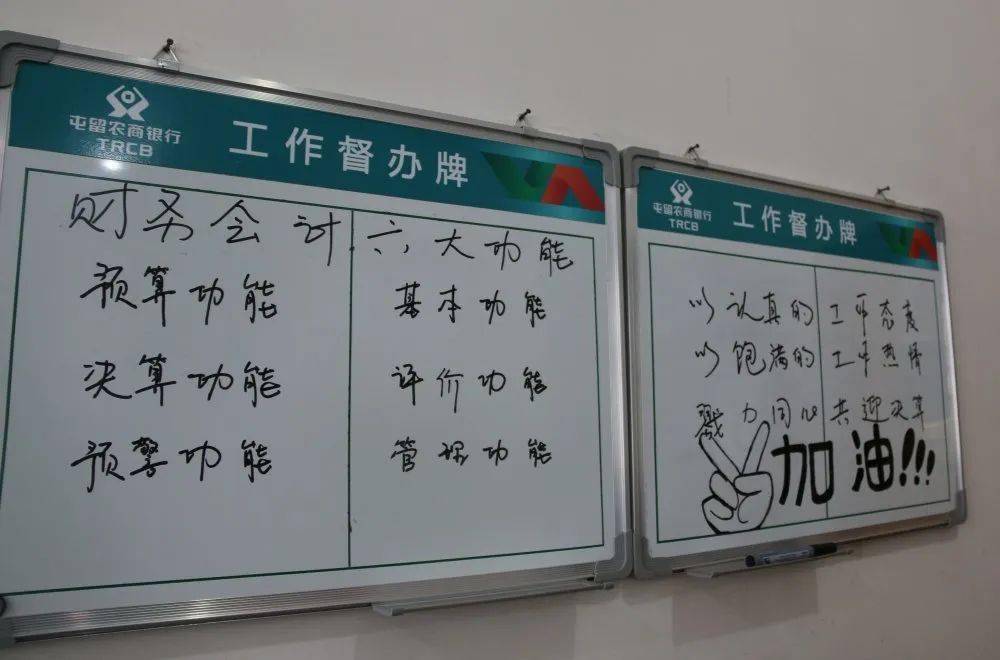 屯留农商银行
TRCB
工作督办牌
财务会计六大功能
预算功能
基本功能
决算功能
评价功能
预警功能
管理功能
屯留农商银行
TRCB
工作督办牌
以认真的工作态度
以饱满的工作热情
戮力同心共迎决算
加油!!!